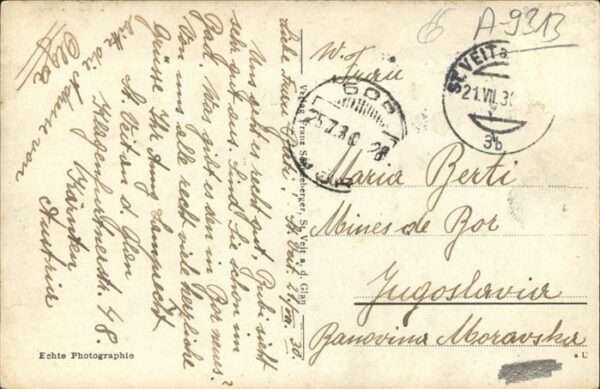 Liebe Frau Berti! St. Veit 21/VII. 30.
Uns geht es recht gut. Bubi sieht
sehr gut aus. Sind Sie schon im
Bad. Was gibt es den in Bor neues?
Von uns alle recht viel herzliche
Grüsse Ihr Anny Lamprecht
St. Veit an d. Glan
Klagenfurterstr. 48.
Kärnten
Austria
Bitte die
Adresse von
Olga
Echte Photographie
Verlag Franz St. Veit a. d. Glan
A-9313
ST. VEIT a
21.VII.30
3b
БОР
25.7.30
W. Frau
Maria Berti
Mines de Bor
Jugoslavia
Banovina Moravska